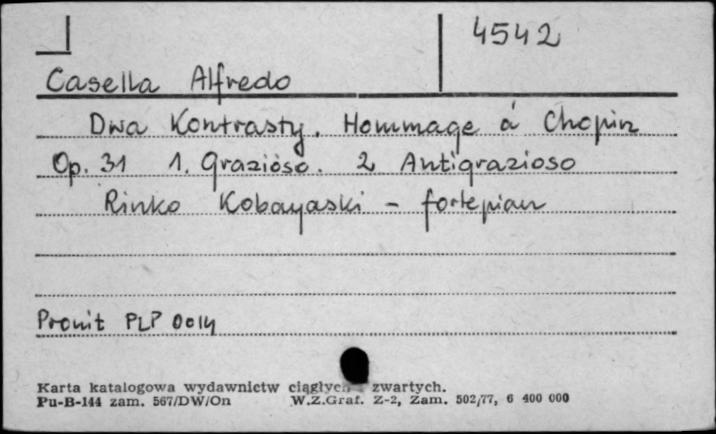 4542
Casella Alfredo
Dwa Kontrasty. Hommage á Chopin
Op. 31 1. Grazioso. 2 Antigrazioso
Rinko Kobayaski - fortepian
Pronit PLP 0014
Karta katalogowa wydawnictw ciągłych i zwartych.
Pu-B-144 zam. 567/DW/On W.Z.Graf. Z-2, Zam. 502/77, 6 400 000